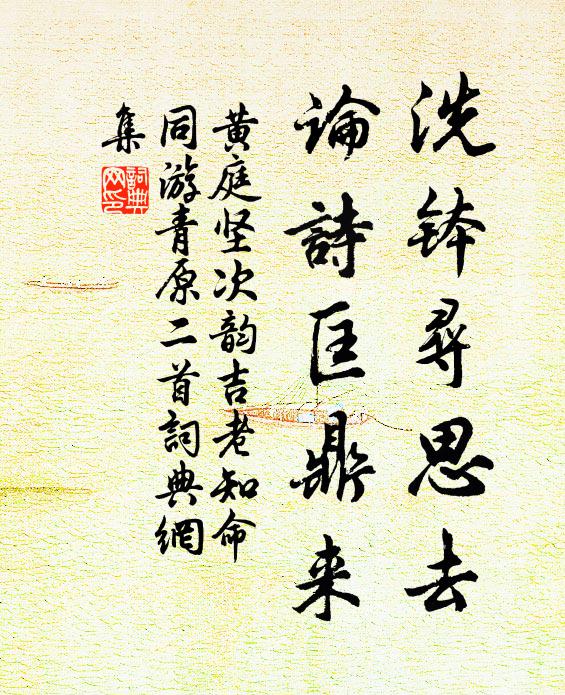 洗钵寻思去
論詩匡鼎来
黄庭坚次韵吉老知命
同游青原二首詞典網
集
詞典
网印